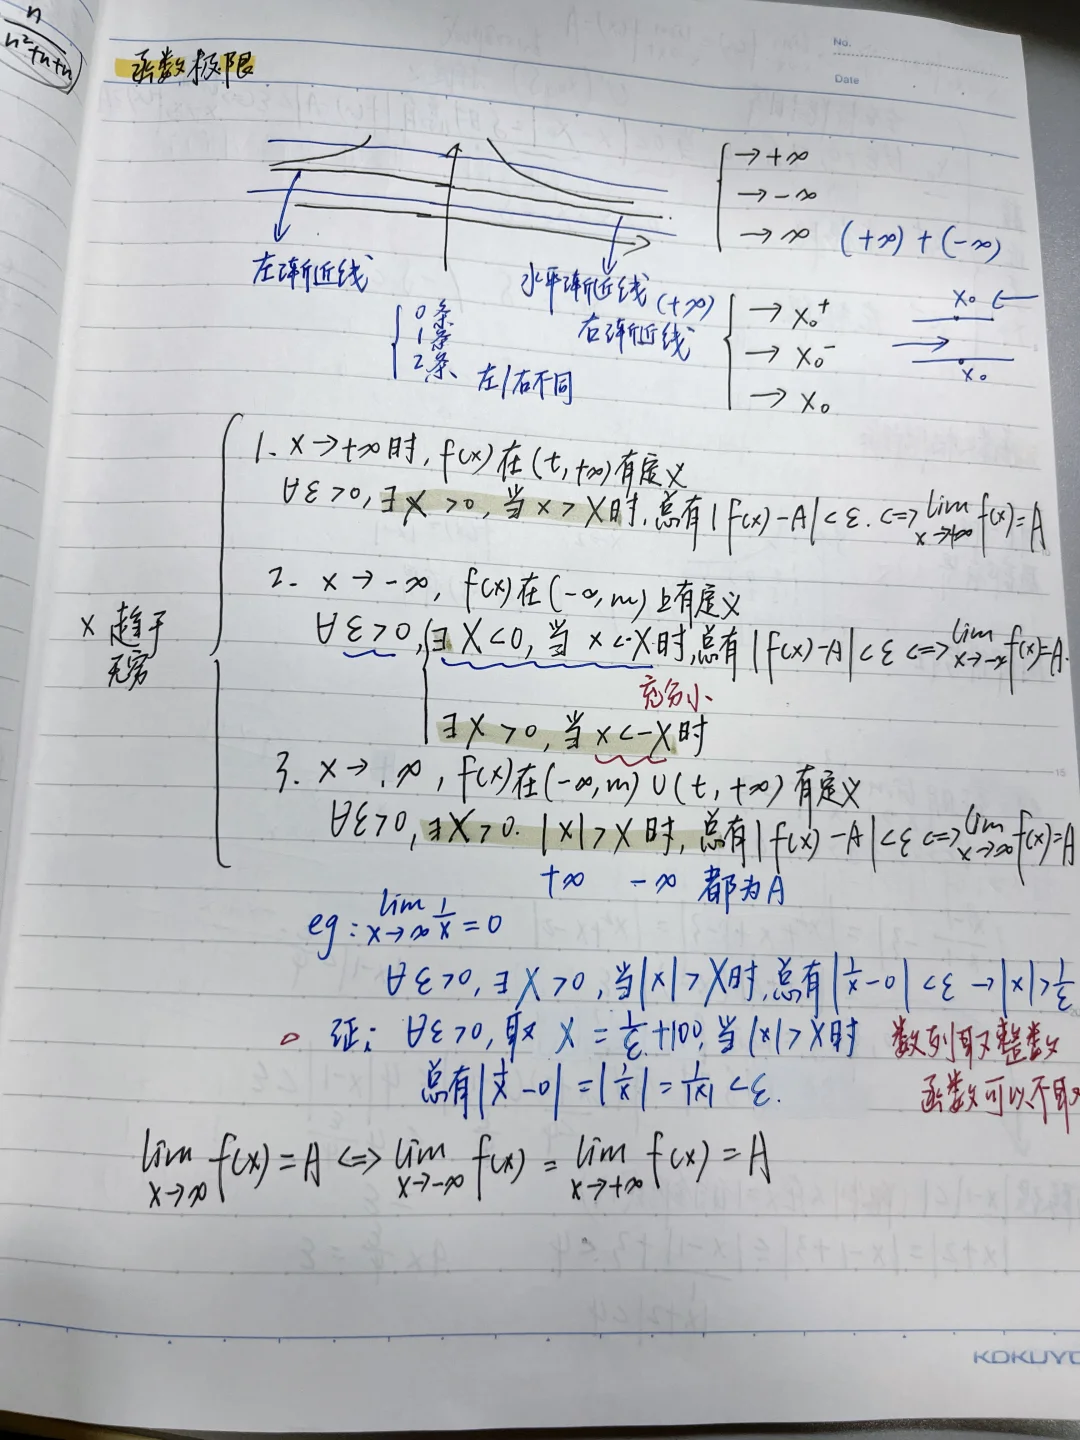 n
n²+n+n
No.
Date
函数极限
→+∞
→-∞
→∞ (+∞)+(-∞)
左渐近线
水平渐近线(+∞)
右渐近线
0条
1条
2条 左/右不同
→x₀⁺
→x₀⁻
→x₀
x₀
x₀
x趋于
无穷
1. x→+∞时, f(x)在(t,+∞)有定义
∀ε>0, ∃X>0, 当x>X时, 总有|f(x)-A|<ε. <=> lim x→+∞ f(x)=A
2. x→-∞, f(x)在(-∞,m)上有定义
∀ε>0, ∃X<0, 当x<X时, 总有|f(x)-A|<ε <=> lim x→-∞ f(x)=A.
充分小
∃X>0, 当x<-X时
3. x→∞, f(x)在(-∞,m)∪(t,+∞)有定义
∀ε>0, ∃X>0. |x|>X时, 总有|f(x)-A|<ε <=> lim x→∞ f(x)=A
+∞ -∞ 都为A
eg: lim x→∞ 1/x=0
∀ε>0, ∃X>0, 当|x|>X时, 总有|1/x-0|<ε ←|x|>1/ε
证: ∀ε>0, 取X=1/ε+100, 当|x|>X时 数列取整数
总有|1/x-0|=|1/x|=1/|x|<ε. 函数可以不取
lim x→∞ f(x)=A <=> lim x→-∞ f(x)=lim x→+∞ f(x)=A
KOKUYO